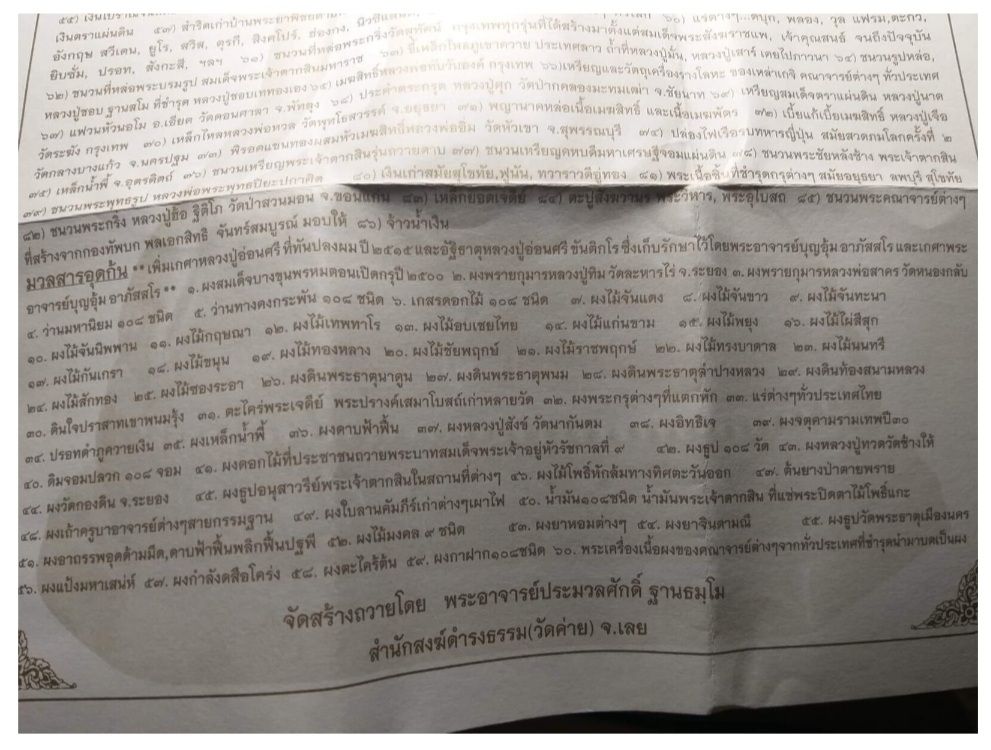 ๕๕) เงินโบราณ
เงินตราแผ่นดิน ๕๗) สำริดเก่าบ้านพระยาพิชัย ๖๐) แร่ต่างๆ...ดีบุก, พลอง, วุล แฟรม,ตะกั่ว,
อังกฤษ สวีเดน, ยูโร, สวิส, ตุรกี, สิงคโปร์, ฮ่องกง, กรุงเทพทุกรุ่นที่ได้สร้างมาตั้งแต่สมเด็จพระสังฆราชแพ, เจ้าคุณสนธ์ จนถึงปัจจุบัน
ยิบซั่ม, ปรอท, สังกะสี, ฯลฯ ๖๑) ชนวนที่หล่อพระกริ่งวัดสุทัศน์ ๖๓) ขี้เหล็กไหลภูเขาควาย ประเทศลาว ถ้ำที่หลวงปู่มั่น, หลวงปู่เสาร์ เคยไปภาวนา ๖๔) ชนวนรูปหล่อ,
๖๒) ชนวนที่หล่อพระบรมรูป สมเด็จพระเจ้าตากสินมหาราช กรุงเทพ ๖๖)เหรียญและวัตถุเครื่องรางโลหะ ของเหล่าเกจิ คณาจารย์ต่างๆ ทั่วประเทศ
หลวงปู่ชอบ ฐานสโม ที่ชำรุด หลวงปู่ชอบเททองเอง ๖๕) เมฆสิทธิ์หลวงพ่อทับวัดอนงค์ หลวงปู่ศุข วัดปากคลองมะทมเฒ่า จ.ชัยนาท ๖๙) เหรียญสมเด็จตราแผ่นดิน หลวงปู่นาค
๖๗) แฟวนหัวนอโม อ.เฮียด วัดดอนศาลา จ.พัทลุง ๖๘) ประคำตะกรุด จ.อยุธยา ๗๑) พญานาคหล่อเนื้อเมฆสิทธิ์ และเนื้อเมฆพัตร ๗๒) เบี้ยแก้เบี้ยเมฆสิทธิ์ หลวงปู่เจือ
วัดระฆัง กรุงเทพ ๗๐) เหล็กไหลหลวงพ่อหวล วัดพุทโธสวรรค์ วัดหัวเขา จ.สุพรรณบุรี ๗๔) ปล่องไฟเรือรบทหารญี่ปุ่น สมัยสงครามโลกครั้งที่ ๒
วัดกลางบางแก้ว จ.นครปฐม ๗๓) พิรอดแขนทองผสมหัวเมฆสิทธิ์หลวงพ่ออิ่ม ๗๗) ชนวนเหรียญคหบดีมหาเศรษฐีจอมแผ่นดิน ๗๘) ชนวนพระชัยหลังช้าง พระเจ้าตากสิน
๗๕) เหล็กน้ำพี้ จ.อุตรดิตถ์ ๗๖) ชนวนเหรียญพระเจ้าตากสินรุ่นถวายดาบ ๘๐) เงินเก่าสมัยสุโขทัย,ฟูนัน, ทวาราวดีอู่ทอง ๘๑) พระเนื้อชินที่ชำรุดกรุต่างๆ สมัยอยุธยา ลพบุรี สุโขทัย
๗๙) ชนวนพระพุทธรูป หลวงพ่อพระพุทธปิยะปกาศิต
๘๒) ชนวนพระกริ่ง หลวงปู่ฮ้อ ฐิติโภ วัดป่าสวนมอน จ.ขอนแก่น ๘๓) เหล็กยอดเจดีย์ ๘๔) ตะปูสังฆวานร พระวิหาร, พระอุโบสถ ๘๕) ชนวนพระคณาจารย์ต่างๆ
ที่สร้างจากกองทัพบก พลเอกสิทธิ จันทร์สมบูรณ์ มอบให้ ๘๖) จ้าวน้ำเงิน
มวลสารอุดก้น **เพิ่มเกศาหลวงปู่อ่อนศรี ที่ทันปลงผม ปี ๒๕๑๕ และอัฐิธาตุหลวงปู่อ่อนศรี ขันติกโร ซึ่งเก็บรักษาไว้โดยพระอาจารย์บุญอุ้ม อาภัสสโร และเกศาพระ
อาจารย์บุญอุ้ม อาภัสสโร ** ๑. ผงสมเด็จบางขุนพรหมตอนเปิดกรุปี ๒๕๐๐ ๒. ผงพรายกุมารหลวงปู่ทิม วัดละหารไร่ จ.ระยอง ๓. ผงพรายกุมารหลวงพ่อสาคร วัดหนองกลับ
๔. ว่านมหานิยม ๑๐๘ ชนิด ๕. ว่านทางคงกระพัน ๑๐๘ ชนิด ๖. เกสรดอกไม้ ๑๐๘ ชนิด ๗. ผงไม้จันแดง ๘. ผงไม้จันขาว ๙. ผงไม้จันทะนา
๑๐. ผงไม้จันนิพพาน ๑๑. ผงไม้กฤษณา ๑๒. ผงไม้เทพทาโร ๑๓. ผงไม้อบเชยไทย ๑๔. ผงไม้แก่นขาม ๑๕. ผงไม้พยุง ๑๖. ผงไม้ไผ่สีสุก
๑๗. ผงไม้กันเกรา ๑๘. ผงไม้ขนุน ๑๙. ผงไม้ทองหลาง ๒๐. ผงไม้ชัยพฤกษ์ ๒๑. ผงไม้ราชพฤกษ์ ๒๒. ผงไม้ทรงบาดาล ๒๓. ผงไม้นนทรี
๒๔. ผงไม้สักทอง ๒๕. ผงไม้ซองระอา ๒๖. ผงดินพระธาตุนาดูน ๒๗. ผงดินพระธาตุพนม ๒๘. ผงดินพระธาตุลำปางหลวง ๒๙. ผงดินท้องสนามหลวง
๓๐. ดินใจปราสาทเขาพนมรุ้ง ๓๑. ตะไคร่พระเจดีย์ พระปรางค์เสมาโบสถ์เก่าหลายวัด ๓๒. ผงพระกรุต่างๆที่แตกหัก ๓๓. แร่ต่างๆทั่วประเทศไทย
๓๔. ปรอทดำภูควายเงิน ๓๕. ผงเหล็กน้ำพี้ ๓๖. ผงดาบฟ้าฟื้น ๓๗. ผงหลวงปู่สังข์ วัดนากันตม ๓๘. ผงอิทธิเจ ๓๙. ผงจตุคามรามเทพปี๓๐
๔๐. ดินจอมปลวก ๑๐๘ จอม ๔๑. ผงดอกไม้ที่ประชาชนถวายพระบาทสมเด็จพระเจ้าอยู่หัวรัชกาลที่ ๙ ๔๒. ผงธูป ๑๐๘ วัด ๔๓. ผงหลวงปู่ทวดวัดช้างให้
๔๔. ผงวัดกองดิน จ.ระยอง ๔๕. ผงธูปอนุสาวรีย์พระเจ้าตากสินในสถานที่ต่างๆ ๔๖. ผงไม้โพธิ์หักล้มทางทิศตะวันออก ๔๗. ต้นยางป่าตายพราย
๔๘. ผงเถ้าครูบาอาจารย์ต่างๆสายกรรมฐาน ๔๙. ผงใบลานคัมภีร์เก่าต่างๆเผาไฟ ๕๐. น้ำมัน๑๐๘ชนิด น้ำมันพระเจ้าตากสิน ที่แช่พระปิดตาไม้โพธิ์แกะ
๕๑. ผงอาถรรพอุดด้ามมีด,ดาบฟ้าฟื้นพลิกฟื้นปฐพี ๕๒. ผงไม้มงคล ๙ ชนิด ๕๓. ผงยาหอมต่างๆ ๕๔. ผงยาจินดามณี ๕๕. ผงธูปวัดพระธาตุเมืองนคร
๕๖. ผงแป้งมหาเสน่ห์ ๕๗. ผงกำลังเสือโคร่ง ๕๘. ผงตะไคร้ต้น ๕๙. ผงกาฝาก๑๐๘ชนิด ๖๐. พระเครื่องเนื้อผงของคณาจารย์ต่างๆจากทั่วประเทศที่ชำรุดนำมาบดเป็นผง
จัดสร้างถวายโดย พระอาจารย์ประมวลศักดิ์ ฐานธมฺโม
สำนักสงฆ์ดำรงธรรม(วัดค่าย) จ.เลย